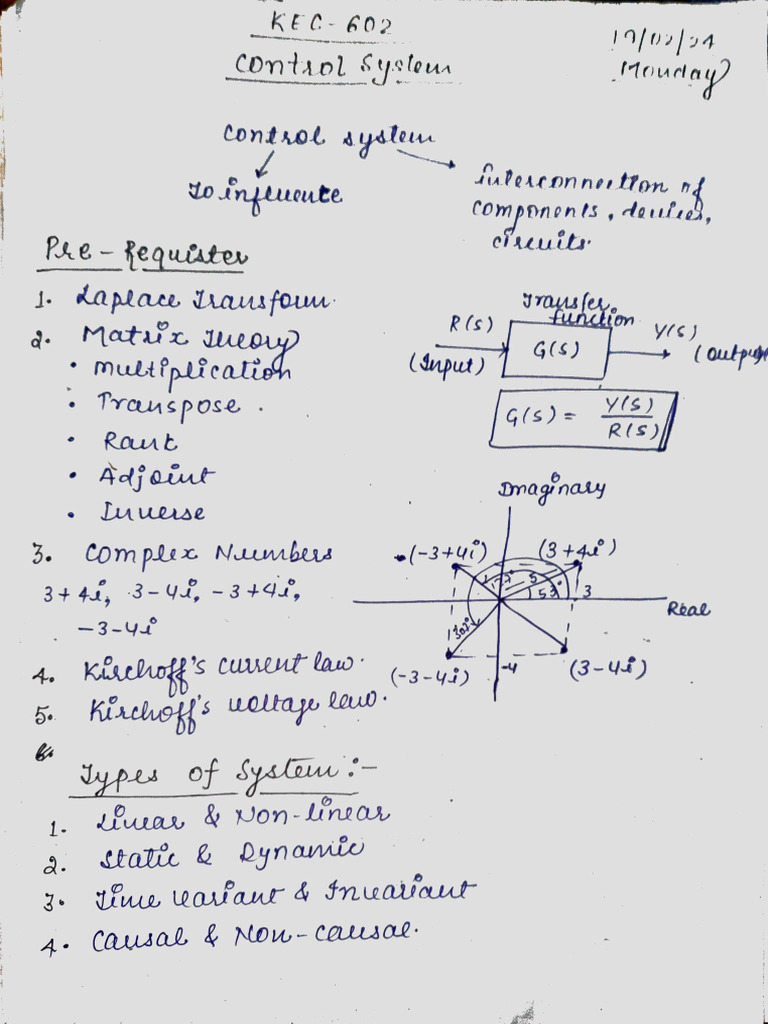 KEC-602
19/02/24
Control System
Monday
Control system
To influence
interconnection of
components, devices,
circuits.
Pre-Requister
1. Laplace Transform.
2. Matrix Theory
• Multiplication
• Transpose.
• Rank
• Adjoint
• Inverse
Transfer
function
R(S)
G(S)
Y(S)
(Input)
(Output)
G(S) = Y(S)/R(S)
3. Complex Numbers
3+4i, 3-4i, -3+4i,
-3-4i
Imaginary
(-3+4i)
(3+4i)
5
53°
3
Real
(-3-4i)
-4
(3-4i)
4. Kirchoff's current law.
5. Kirchoff's voltage law.
6.
Types of System:-
1. Linear & Non-linear
2. Static & Dynamic
3. Time Variant & Invariant
4. Causal & Non-causal.